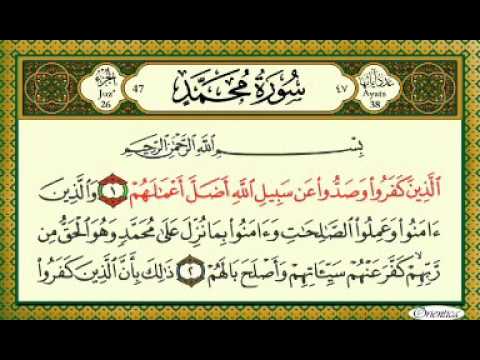 الجزء Juz' 26 47 سُورَةُ مُحَمَّد ٤٧ عدد آياتها Ayats 38
بِسْمِ اللَّهِ الرَّحْمَٰنِ الرَّحِيمِ
الَّذِينَ كَفَرُوا وَصَدُّوا عَن سَبِيلِ اللَّهِ أَضَلَّ أَعْمَالَهُمْ ١ وَالَّذِينَ
ءَامَنُوا وَعَمِلُوا الصَّالِحَاتِ وَءَامَنُوا بِمَا نُزِّلَ عَلَىٰ مُحَمَّدٍ وَهُوَ الْحَقُّ مِن
رَّبِّهِمْ كَفَّرَ عَنْهُمْ سَيِّئَاتِهِمْ وَأَصْلَحَ بَالَهُمْ ٢ ذَٰلِكَ بِأَنَّ الَّذِينَ كَفَرُوا
Orientica